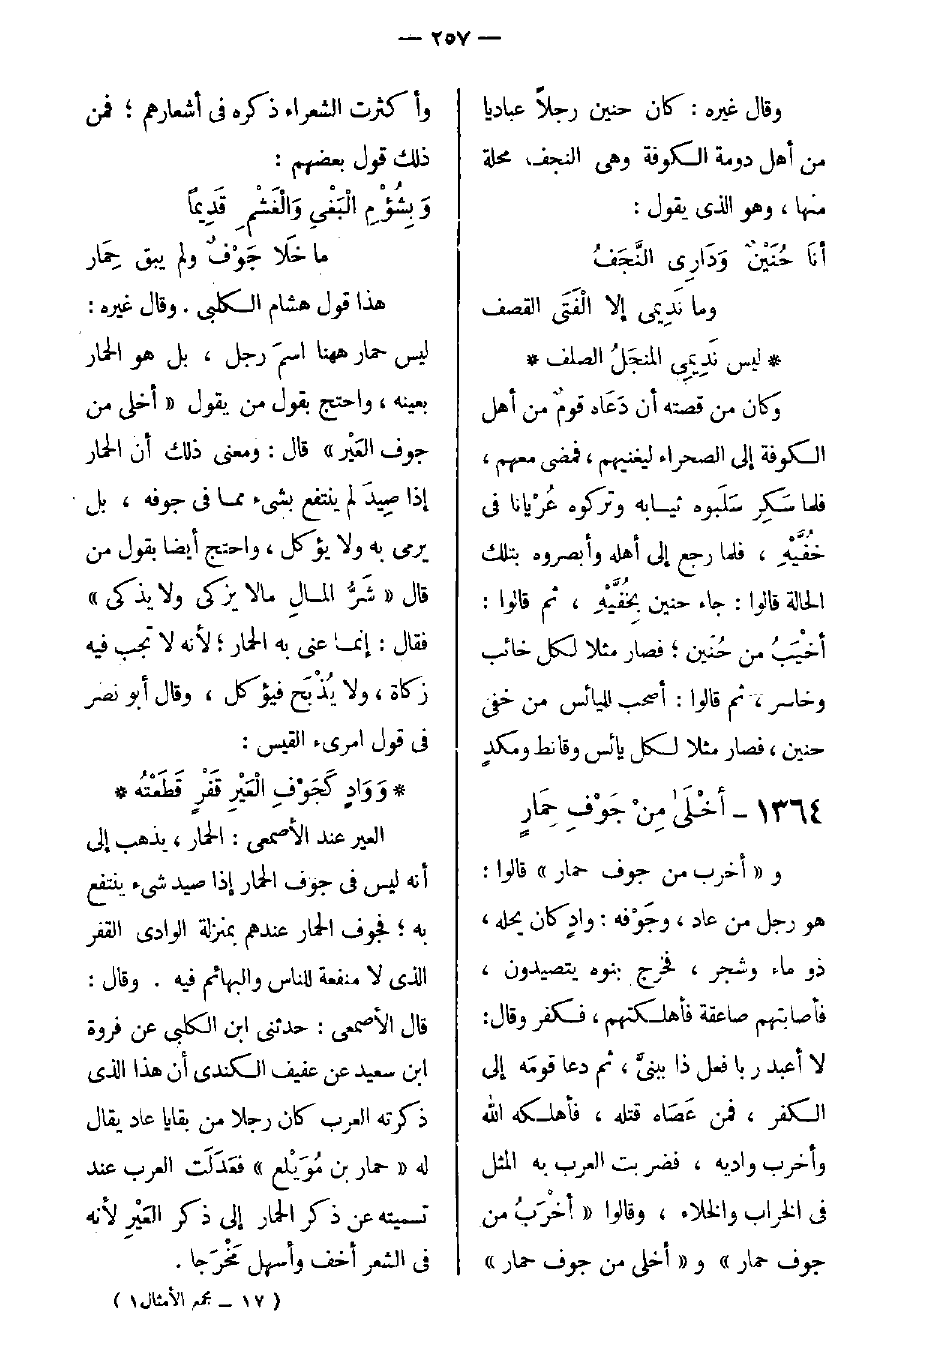 — ٢٥٧ —
وقال غيره : كان حنين رجلاً عباديا
من أهل دومة الكوفة وهى النجف محلة
منها ، وهو الذى يقول :
أنا حُنَيْنٌ وَدَارِى النَّجَفُ
وما نَدِيمِى إلا الْفَتَى القصف
* ليس نَدِيمِي المنجَلُ الصلف *
وكان من قصته أن دَعَاه قومٌ من أهل
الكوفة إلى الصحراء ليغنيهم ، فمضى معهم ،
فلما سَكِرِ سَلَبوه ثيابه وتركوه عُرْيانا فى
خُفَّيْهِ ، فلما رجع إلى أهله وأبصروه بتلك
الحالة قالوا : جاء حنين بِخُفَّيْهِ ، ثم قالوا :
أخْيَبُ من حُنَين ؛ فصار مثلا لكل خائب
وخاسر ، ثم قالوا : أصحب لليائس من خفى
حنين ، فصار مثلا لكل يائس وقانط ومكدٍ
١٣٦٤ - أَخْلَى مِنْ جَوْفِ حِمَارٍ
و « أخرب من جوف حمار » قالوا :
هو رجل من عاد ، وجَوْفه : وادٍ كان يحله ،
ذو ماء وشجر ، فخرج بنوه يتصيدون ،
فأصابتهم صاعقة فأهلكتهم ، فكفر وقال :
لا أعبد ربا فعل ذا ببنىَّ ، ثم دعا قومَه إلى
الكفر ، فمن عَصَاه قتله ، فأهلكه الله
وأخرب واديه ، فضربت العرب به المثل
فى الخراب والخلاء ، وقالوا « أخْرَبُ من
جوف حمار » و « أخلى من جوف حمار »
وأكثرت الشعراء ذكره فى أشعارهم ؛ فمن
ذلك قول بعضهم :
وَبِشُؤْمِ الْبَغْيِ وَالْغَشْمِ قَدِيماً
ما خَلَا جَوْفٌ ولم يبق حِمَار
هذا قول هشام الكلبى . وقال غيره :
ليس حمار ههنا اسمَ رجل ، بل هو الحمار
بعينه ، واحتج بقول من يقول « أخلى من
جوف العَيْرِ » قال : ومعنى ذلك أن الحمار
إذا صِيدَ لم ينتفع بشىء مما فى جوفه ، بل
يرمى به ولا يؤكل ، واحتج أيضا بقول من
قال « شَرُّ المالِ مالا يزكى ولا يذكى »
فقال : إنما عنى به الحمار ؛ لأنه لا تجب فيه
زكاة ، ولا يُذْبَح فيؤكل ، وقال أبو نصر
فى قول امرىء القيس :
* وَوَادٍ كَجَوْفِ الْعَيْرِ قَفْرٍ قَطَعْتُه *
العير عند الأصمعى : الحمار ، يذهب إلى
أنه ليس فى جوف الحمار إذا صيد شىء ينتفع
به ؛ فجوف الحمار عندهم بمنزلة الوادى القفر
الذى لا منفعة للناس والبهائم فيه . وقال :
قال الأصمعى : حدثنى ابن الكلبى عن فروة
ابن سعيد عن عفيف الكندى أن هذا الذى
ذكرته العرب كان رجلا من بقايا عاد يقال
له « حمار بن مُوَيْلع » فعَدَلَت العرب عند
تسميته عن ذكر الحمار إلى ذكر العَيْرِ لأنه
فى الشعر أخف وأسهل مَخْرَجا .
( ١٧ - مجمع الأمثال ١ )